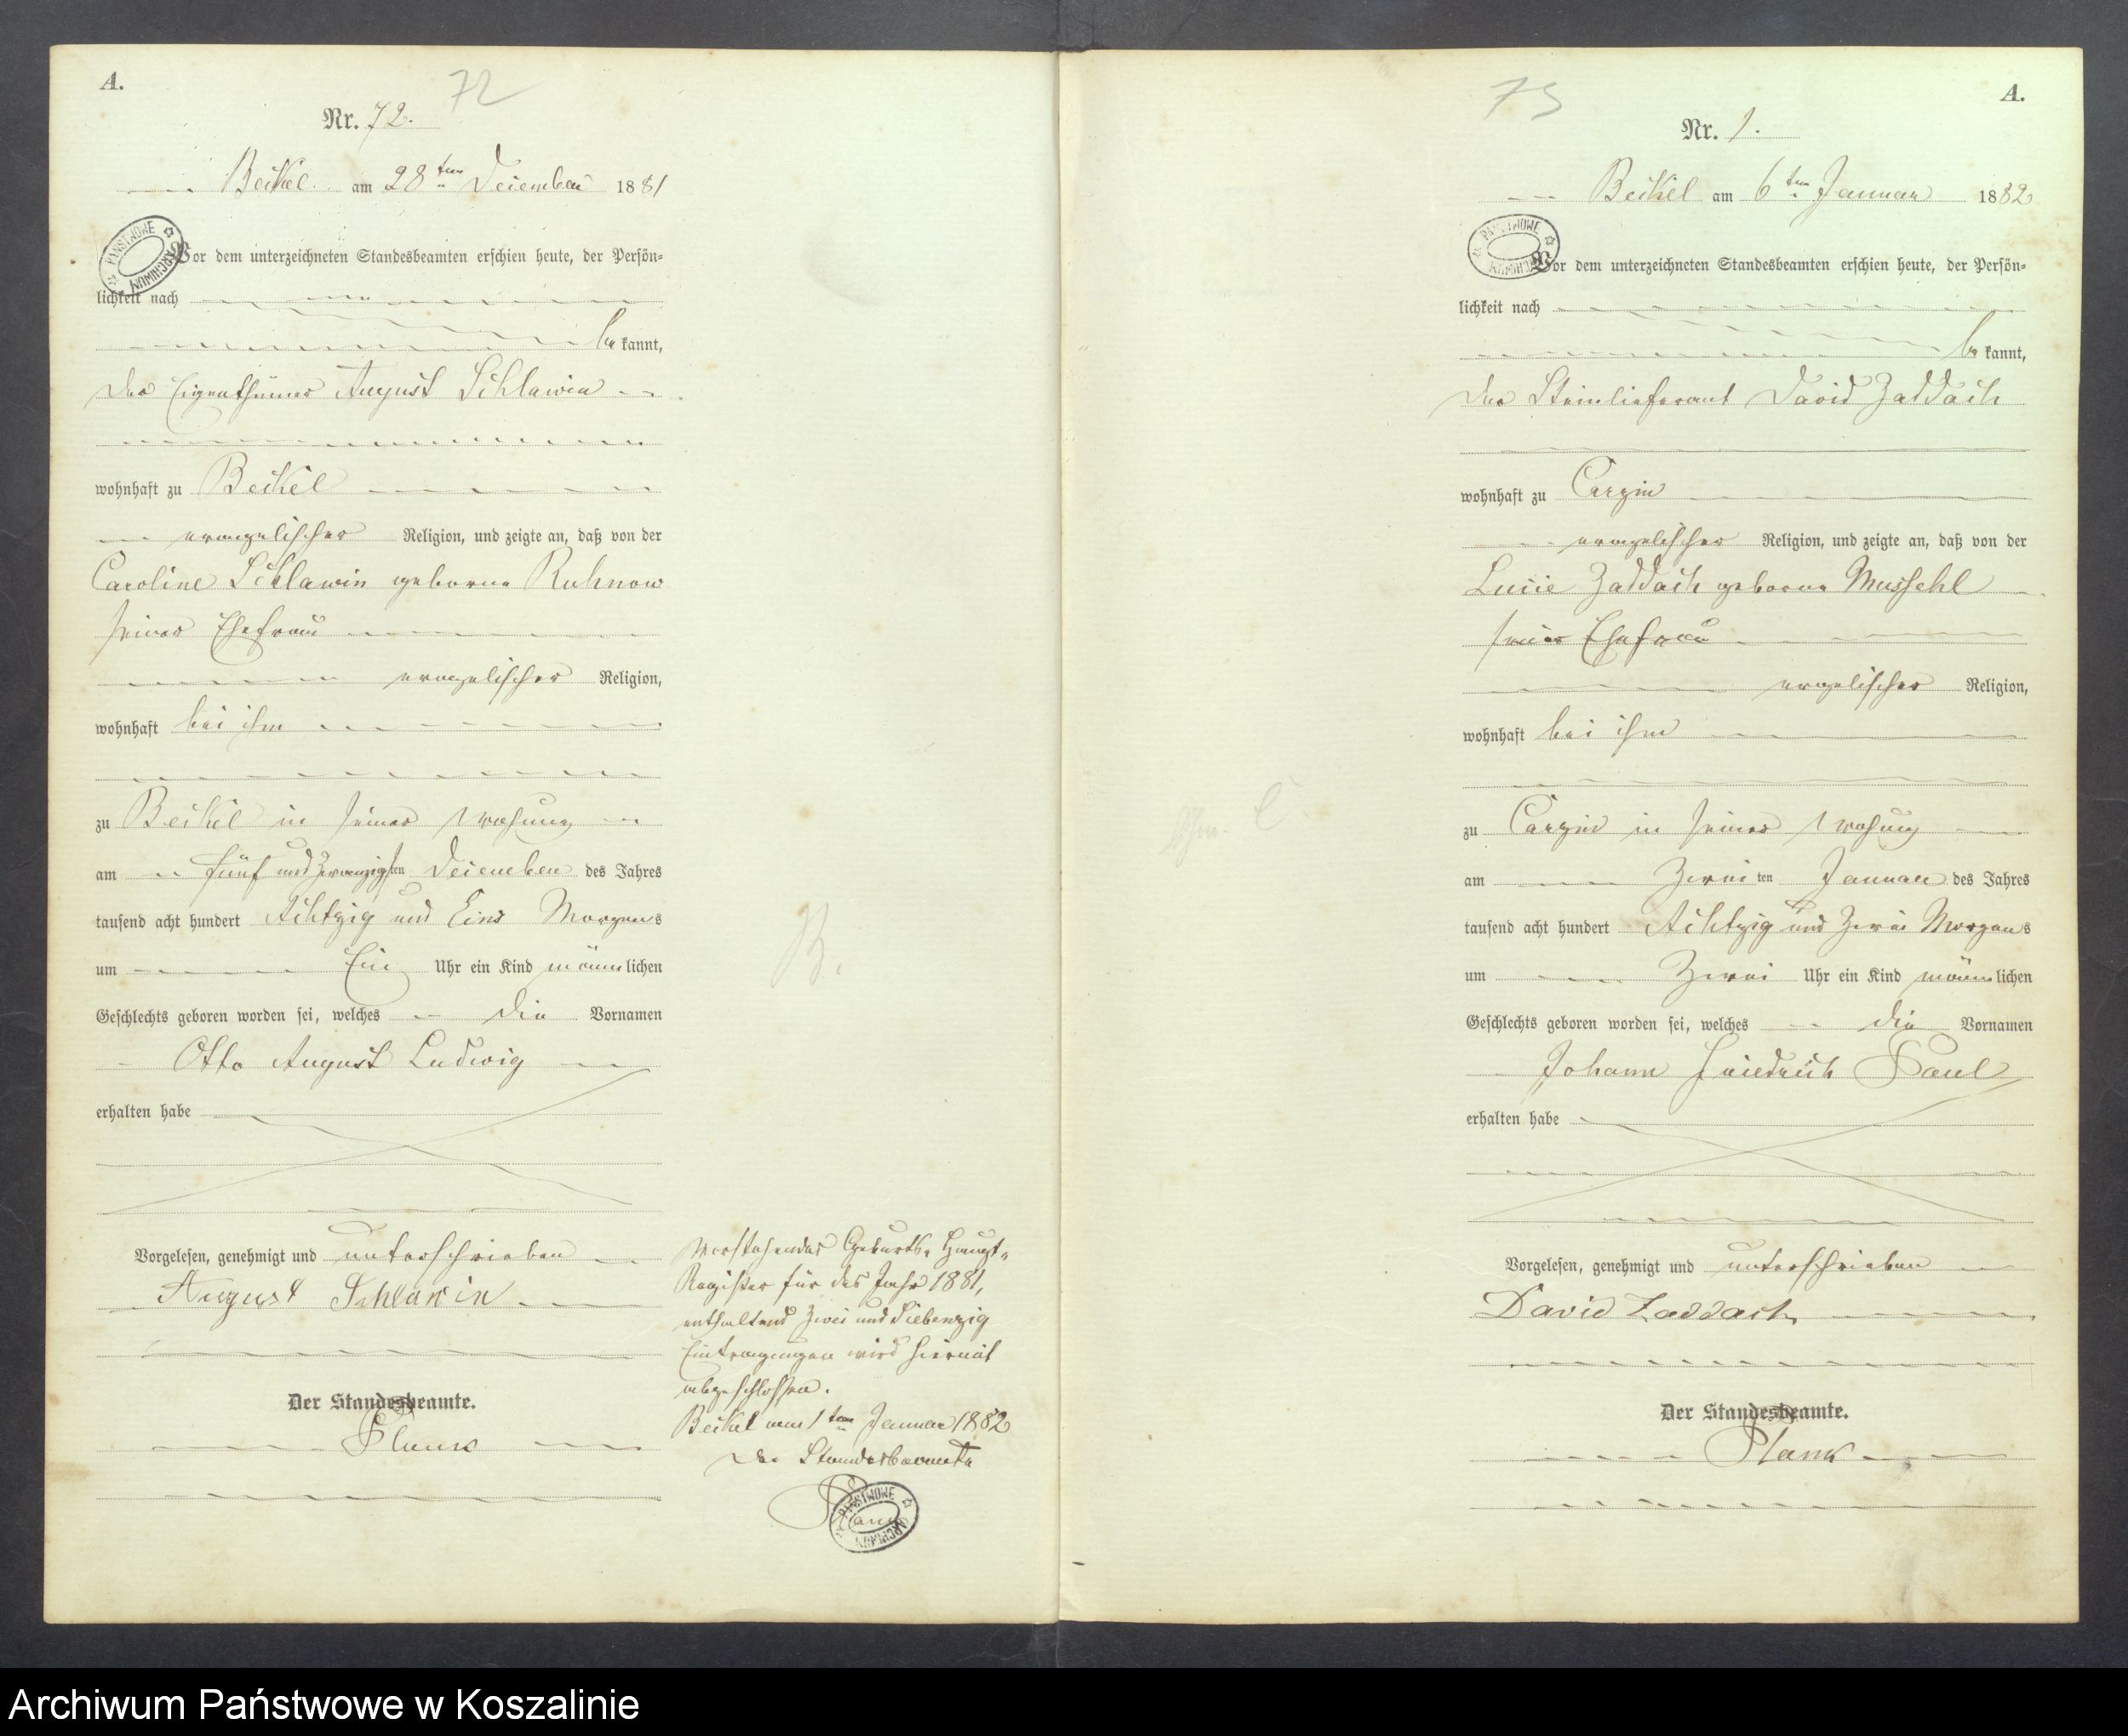 A.
72
Nr. 72.
Beikel am 28ten Decembei 1881
Vor dem unterzeichneten Standesbeamten erschien heute, der Persön-
lichkeit nach
be kannt,
der Eigenthümer August Schlawin
wohnhaft zu Beikel
evangelischer Religion, und zeigte an, daß von der
Caroline Schlawin geborne Ruhnow
seiner Ehefrau
evangelischer Religion,
wohnhaft bei ihm
zu Beikel in seiner Wohung
am fünf und zwanzigsten Decembeu des Jahres
tausend acht hundert Achtzig und Eins Morgens
um Ein Uhr ein Kind männlichen
Geschlechts geboren worden sei, welches die Vornamen
Otto August Ludwig
erhalten habe
Vorgelesen, genehmigt und unterschrieben
August Schlawin
Der Standesbeamte.
Plank
B.
Vorstehendes Geburts-Haupt-
Register für das Jahr 1881,
enthaltend Zwei und Siebenzig
Eintragungen wird hiermit
abgeschlossen.
Beikel am 1ten Januar 1882
Der Standesbeamte
Plank
PAŃSTWOWE ARCHIWUM
73
A.
Nr. 1.
Beikel am 6ten Januar 1882
Vor dem unterzeichneten Standesbeamten erschien heute, der Persön-
lichkeit nach
be kannt,
der Steinlieferant David Zaddach
wohnhaft zu Carzin
evangelischer Religion, und zeigte an, daß von der
Lucie Zaddach geborne Mussehl
seiner Ehefrau
evangelischer Religion,
wohnhaft bei ihm
zu Carzin in seiner Wohung
am Zweiten Januar des Jahres
tausend acht hundert Achtzig und Zwei Morgens
um Zwei Uhr ein Kind männlichen
Geschlechts geboren worden sei, welches die Vornamen
Johann Friedrich Paul
erhalten habe
Vorgelesen, genehmigt und unterschrieben
David Zaddach
Der Standesbeamte.
Plank
Archiwum Państwowe w Koszalinie